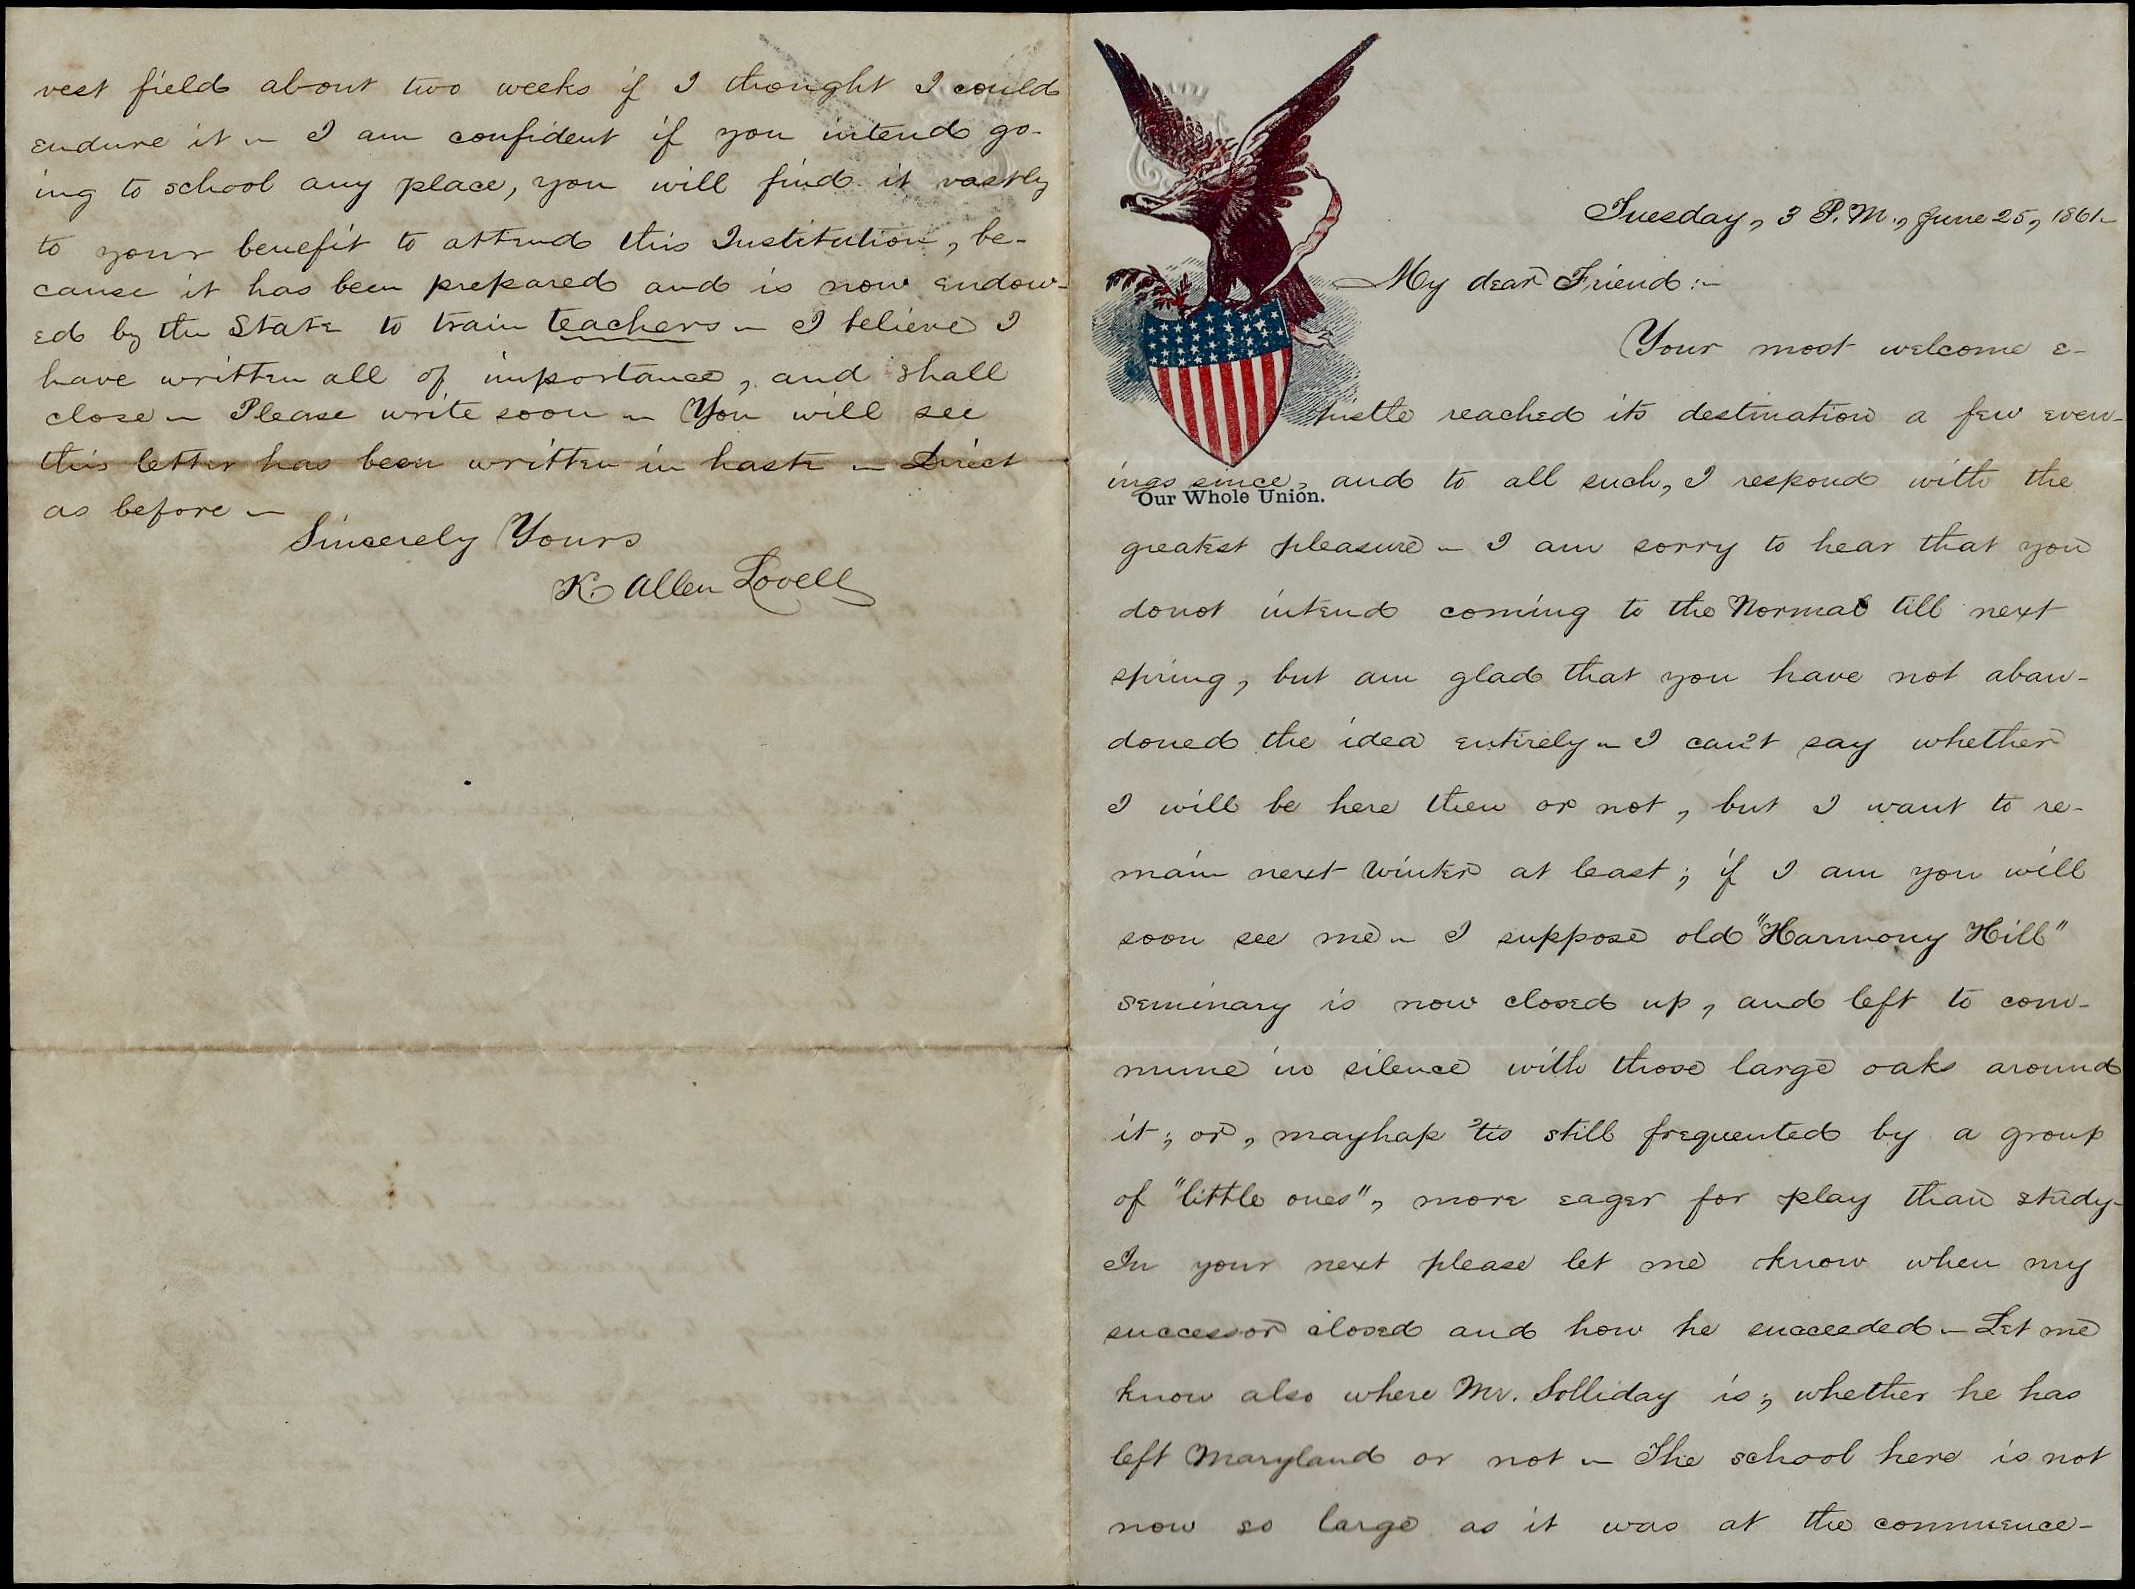 Tuesday, 3 P.M., June 25, 1861.
My dear Friend:-
Your most welcome e-
pistle reached its destination a few even-
ings since, and to all such, I respond with the
Our Whole Union.
greatest pleasure - I am sorry to hear that you
donot intend coming to the Normal till next
spring, but am glad that you have not aban-
doned the idea entirely - I can't say whether
I will be here then or not, but I want to re-
main next Winter at least; if I am you will
soon see me - I suppose old "Harmony Hill"
seminary is now closed up, and left to com-
mune in silence with those large oaks around
it; or, mayhap 'tis still frequented by a group
of "little ones", more eager for play than study-
In your next please let me know when my
successor closed and how he succeeded - Let me
know also where Mr. Solliday is, whether he has
left Maryland or not - The school here is not
now so large as it was at the commence-
vest field about two weeks if I thought I could
endure it - I am confident if you intend go-
ing to school any place, you will find it vastly
to your benefit to attend this Institution, be-
cause it has been prepared and is now endow-
ed by the State to train teachers - I believe I
have written all of importance, and shall
close - Please write soon - You will see
this letter has been written in haste - Direct
as before -
Sincerely Yours
K. Allen Lovell